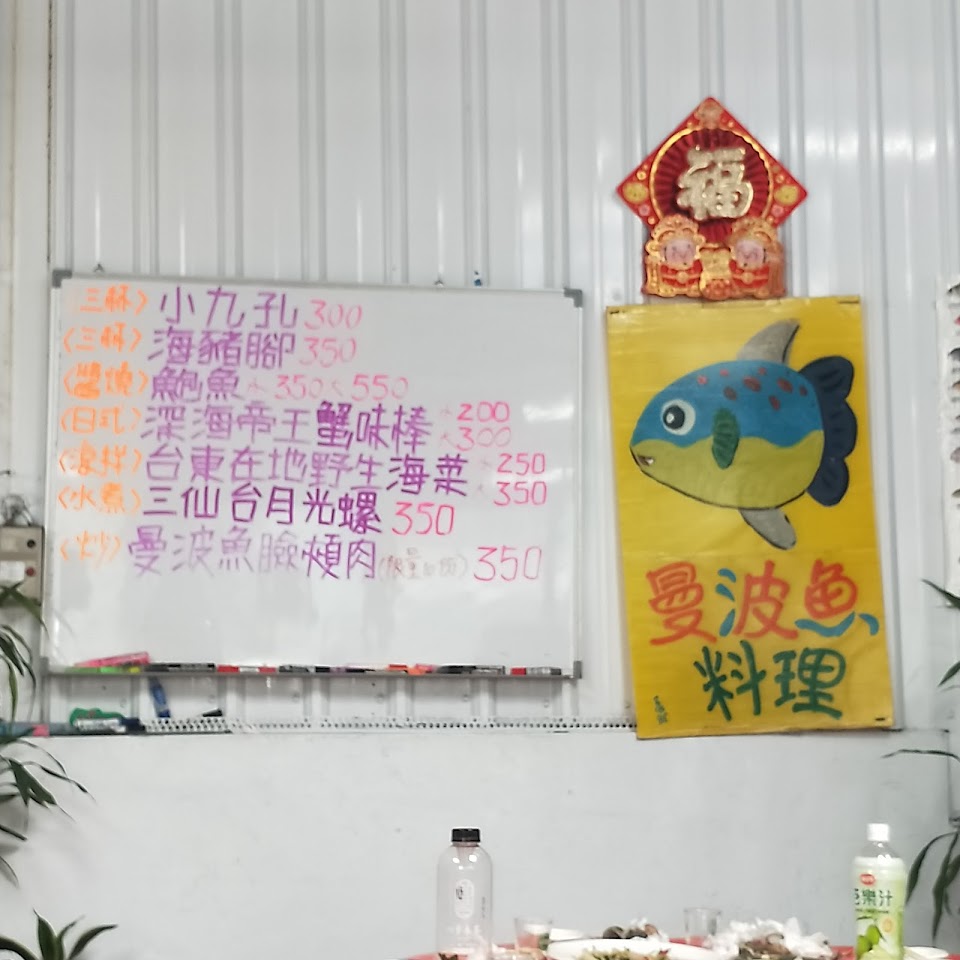 福
〈三杯〉小九孔300
〈三杯〉海豬腳350
〈醬燒〉鮑魚小350大550
〈日式〉深海帝王蟹味棒小200
大300
〈涼拌〉台東在地野生海菜小250
大350
〈水煮〉三仙台月光螺350
〈炒〉曼波魚臉頰肉 350
曼波魚
料理
芭樂汁